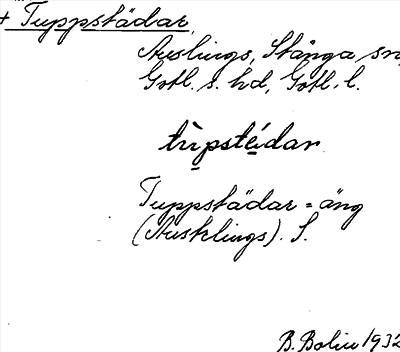 + Tuppstädar,
Auslings, Stånga sn,
Gotl. s. hd, Gotl. l.
tùpstédar
Tuppstädar = äng
(Ausklings). S.
B. Bolin 1932